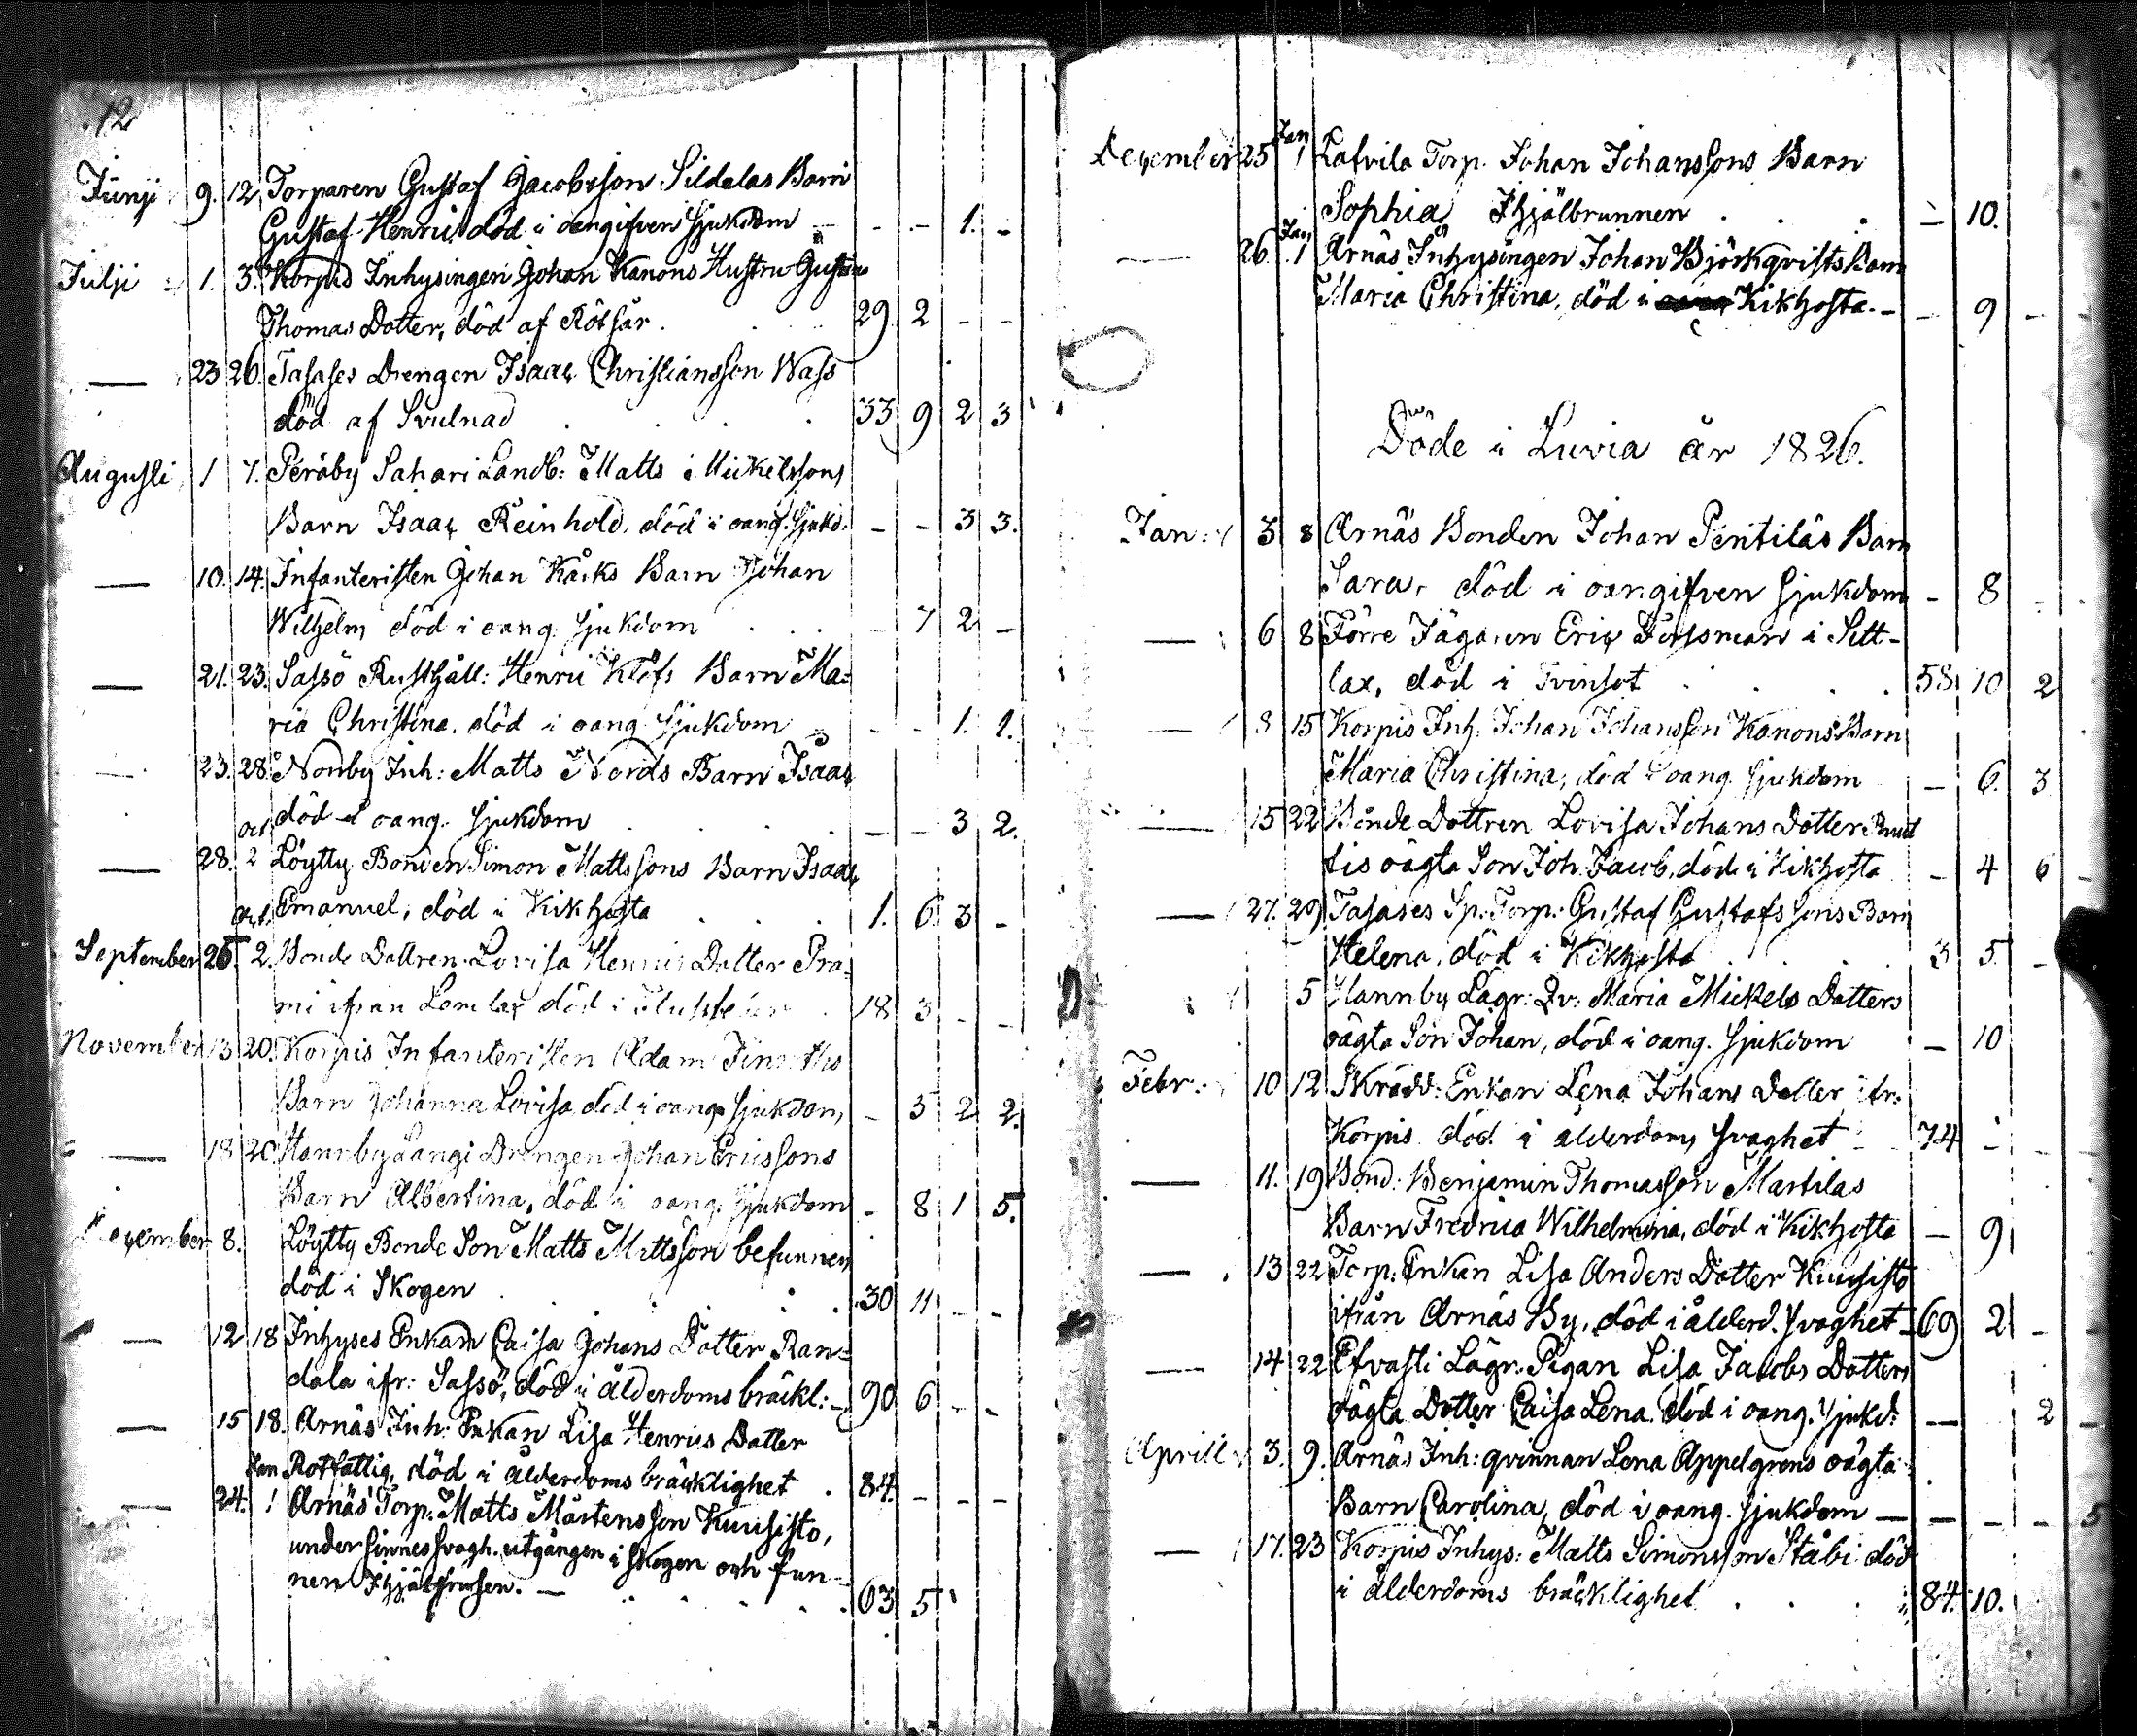 12
Junji 9. 12, Torparen Gustaf Jacobsson Sildalas Barn
Gustaf Henric, död i oangifven sjukdom - - - 1. -
Julji 1. 3. Korpis Inhysingen Johan Kanons Hustru Gustava
Thomas Dotter, död af Rötsår. 29 2 - -
— 23 26. Tasases Drengen Isaac Christiansson Wass
död af Svulnad 33 9 2 3
Augusti 1 7. Peräby Sahari Landb: Matts Mickelssons
Barn Isaac Reinhold, död i oang. sjukd. - - 3 3.
— 10. 14. Infanteristen Johan Kåcks Barn Johan
Wilhelm död i oang: sjukdom - 7 2 -
— 21. 23. Sassö Rusthåll: Henric Klöfs Barn Ma=
ria Christina, död i oang sjukdom - - 1. 1.
— 23. 28. Norrby Inh: Matts Nords Barn Isaac
död i oang. sjukdom - - 3 2.
— 28. oct 2 Löytty Bonden Simon Mattssons Barn Isaac
Emanuel, död i Kikhosta 1. 6 3 -
September 25. oct 2. Bonde Dottren Lovisa Henrics Dotter Pra=
mi ifrån Lemlax död i 18 3 - -
November 13 20. Korpis Infanteristen Adam
Barn Johanna Lovisa död i oang. sjukdom, - 5 2 2.
— 18 20 Hannby Långi Drengen Johan Ericssons
Barn Albertina, död i oang. sjukdom - 8 1 5.
December 8. Löytty Bonde Son Matts Mattsson befunnen
död i Skogen 30 11 - -
— 12 18 Inhyses Enkan Caisa Johans Dotter Ran=
dala ifr: Sassö, död i ålderdoms bräckl: - 90 6 - -
— 15 18. Arnäs Inh: Enkan Lisa Henrics Dotter
Rotfattig, död i ålderdoms bräcklighet 84. - - -
— 24. Jan 1 Arnäs Torp: Matts Mårtensson Kuusisto,
under sinnessvagh. utgången i skogen och fun=
nen Ihjälfrusen. — 63 5
December 25 Jan 1 Lafvila Torp. Johan Johanssons Barn
Sophia Ihjälbrunnen - 10.
— 26. Jan 1 Arnäs Inhysingen Johan Björkqvists Barn
Maria Christina, död i Kikhosta. - - 9 -
Döde i Luvia år 1826.
Jan: 3 8 Arnäs Bonden Johan Pentiläs Barn
Sara, död i oangifven sjukdom - 8 -
— 6 8 Förre Jägaren Eric Forssman i Sett-
lax, död i Tvinsot 58 10 2
— 8 15 Korpis Inh: Johan Johansson Kanons Barn
Maria Christina, död i oang. sjukdom - 6. 3
— 15 22 Bonde Dottren Lovisa Johans Dotter
tis oägta Son Joh: Jacob, död i Kikhosta - 4 6 -
— 27. 29 Tasases Sp: Torp: Gustaf Gustafssons Barn
Helena, död i Kikhosta 3 5 -
5 Hannby Lägr: Qv: Maria Mickels Dotters
oägta Son Johan, död i oang. sjukdom - 10
Febr: 10 12 Skrädd: Enkan Lena Johans Dotter ifr:
Korpis död i ålderdoms svaghet 74 -
— 11. 19 Bond: Benjamin Thomasson Martilas
Barn Fredrica Wilhelmina, död i Kikhosta - 9
— 13 22 Torp: Enkan Lisa Anders Dotter Kuusisto
ifrån Arnäs By, död i ålderd. svaghet 69 2 - -
— 14 22 Efvasti Lägr: Pigan Lisa Jacobs Dotters
oägta Dotter Caisa Lena död i oang. sjukd: — 2 -
Aprill 3. 9. Arnäs Inh: qvinnan Lena Appelgrens oägta
Barn Carolina, död i oang. sjukdom — - - - 5
— 17. 23 Korpis Inhys: Matts Simonsson Ståbi död
i ålderdoms bräcklighet 84. 10.